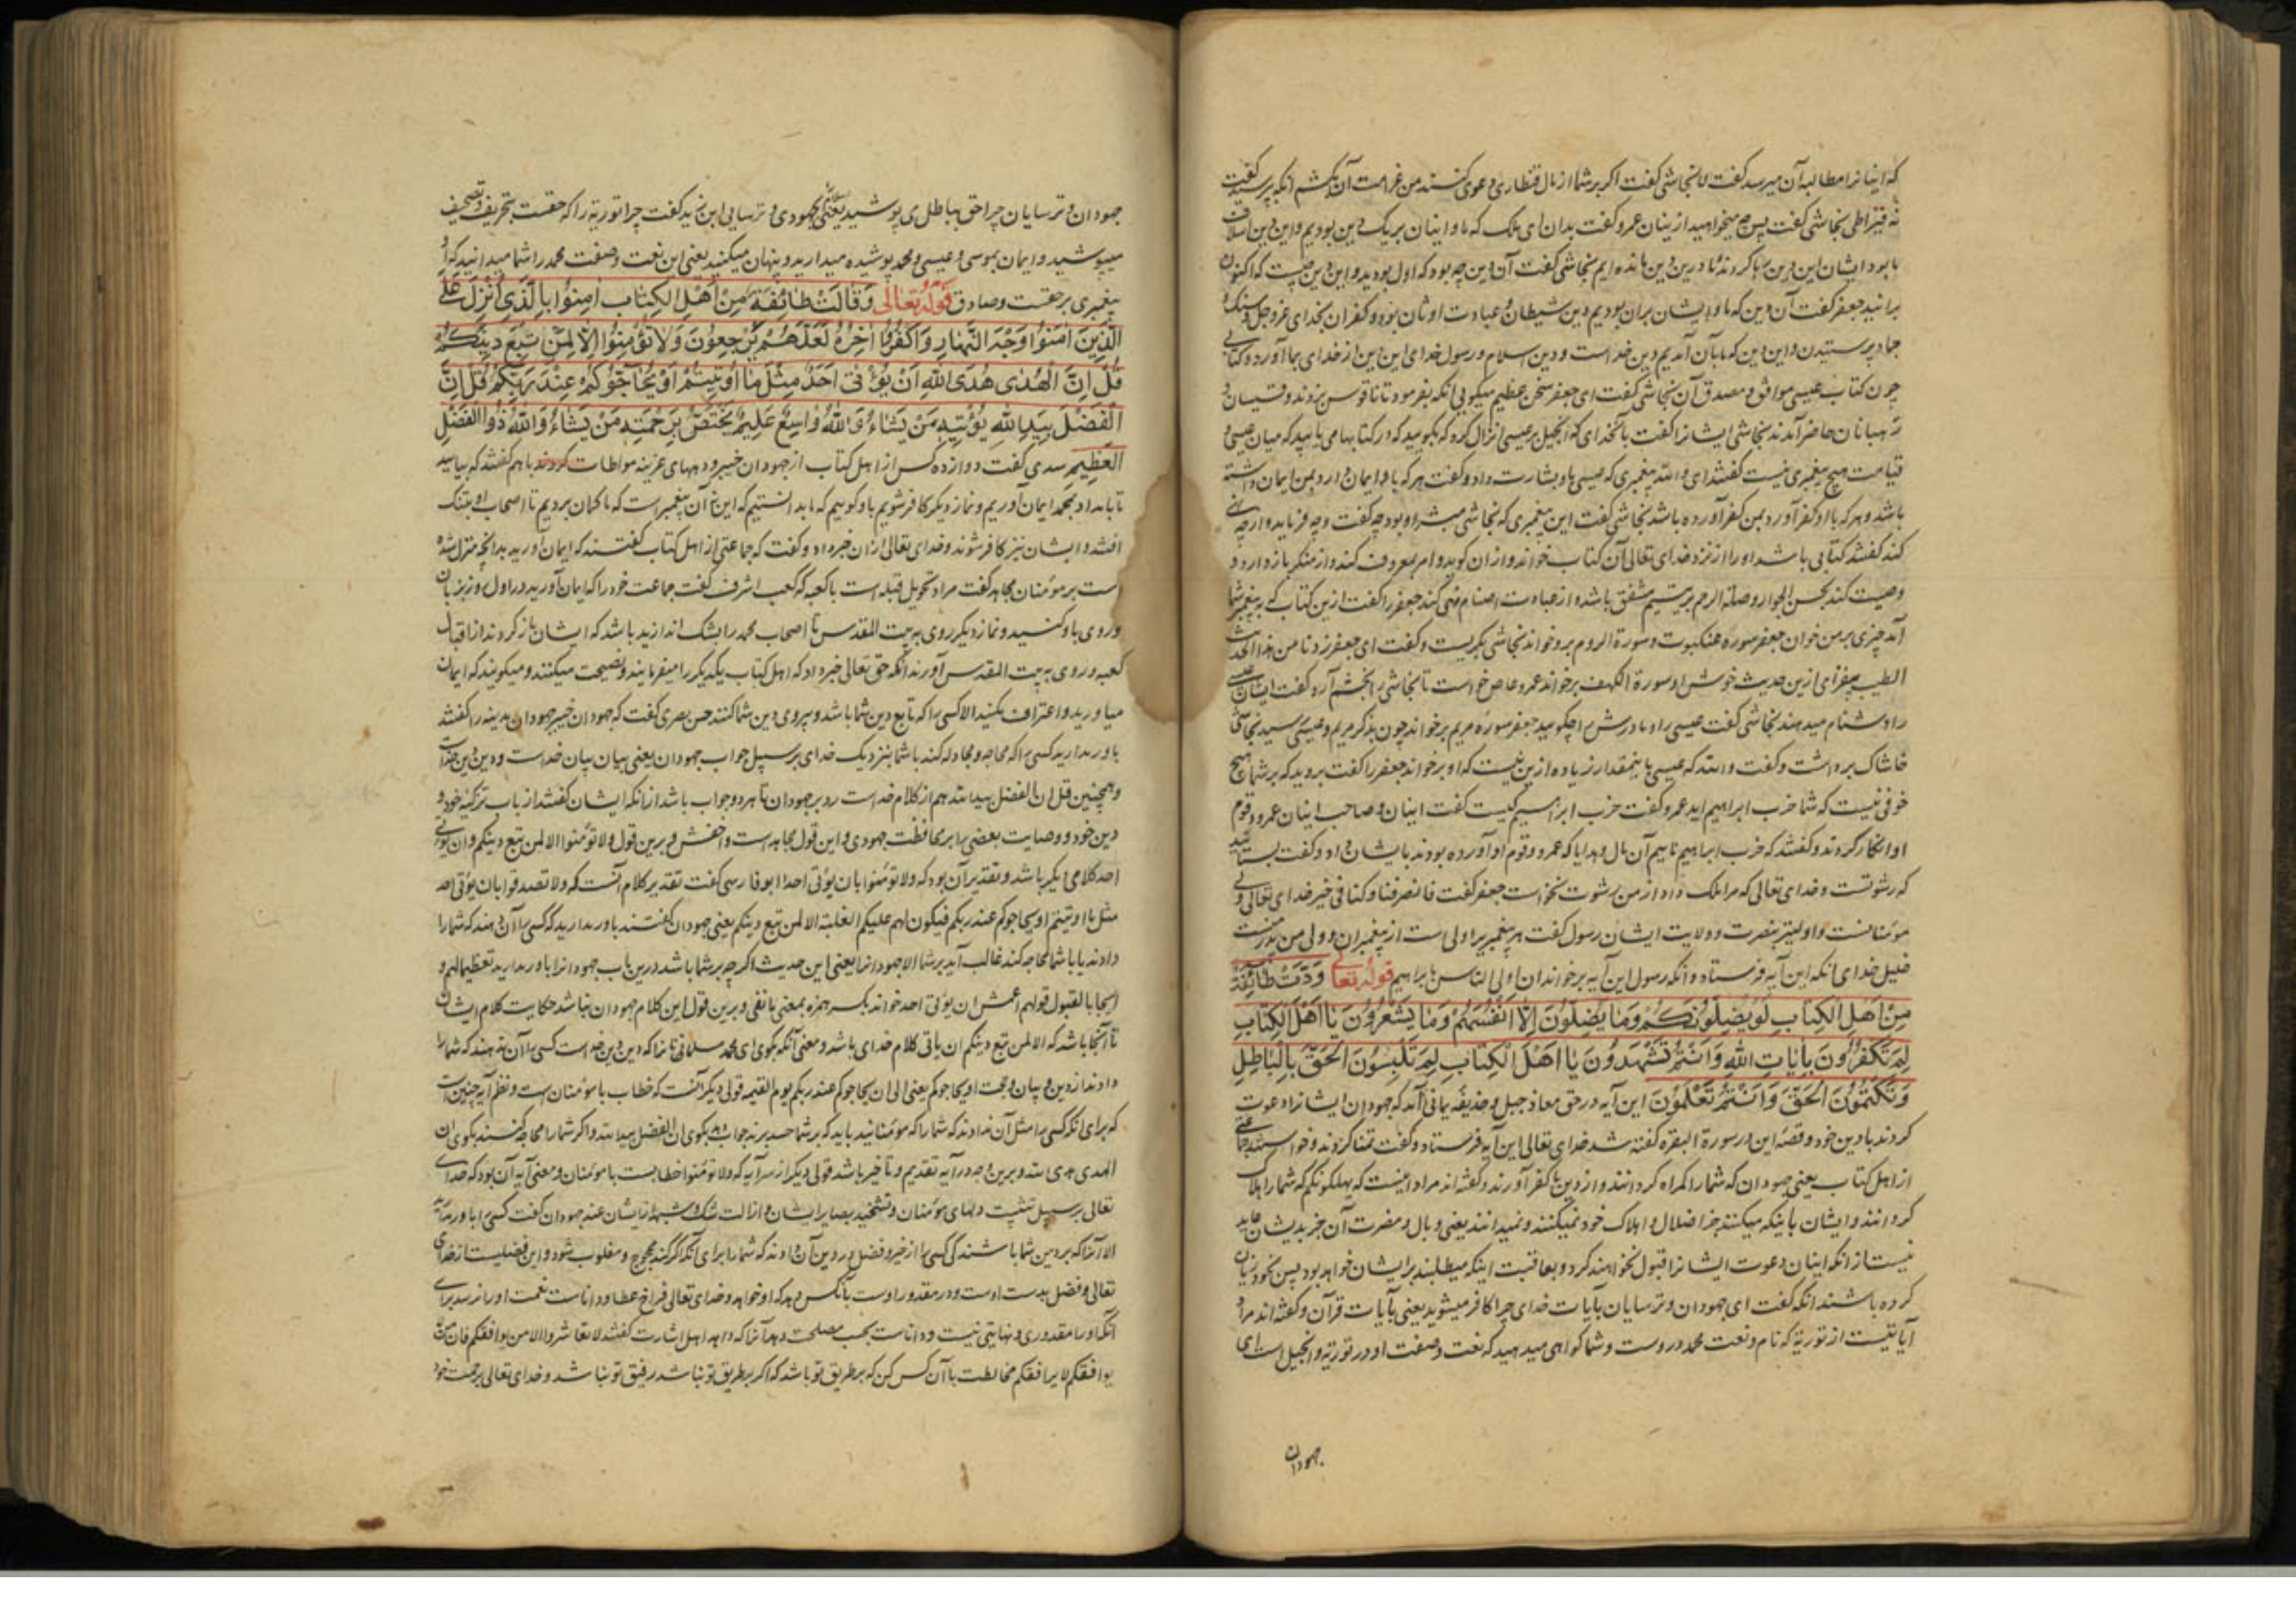 که اینانرا مطالبه آن میرسد گفت لا نجاشی گفت اکر بر شما از مال قنطاری دعوی کنند من غرامت آن بکشم آنکه پرسید گفت
نه قیراطی نجاشی گفت پس چه میخواهید ازینان عمرو گفت بدان ای ملک که ما و اینان بر یک دین بودیم و این دین اسلاف
ما بود ایشان این دین رها کردند و ما درین دین مانده ایم نجاشی گفت آن دین چه بود که اول بودید و این دین چیست که اکنون
برانید جعفر گفت آن دین که ما و ایشان بران بودیم دین شیطان و عبادت اوثان بود و کفران بخدای عزوجل و سنک و
جماد پرستیدن و این دین که ما بآن آمدیم دین خداست و دین اسلام و رسول خدای این دین از خدای بما آورد و کتابی
چون کتاب عیسی موافق و مصدق آن نجاشی گفت ای جعفر سخن عظیم میکویی آنکه بفرمود تا ناقوس بزدند و قسیسان و
رهبانان حاضر آمدند نجاشی ایشانرا گفت بآنخدای که انجیل بر عیسی انزال کرد که بکویید که در کتابها می یابید که میان عیسی و
قیامت هیچ پیغمبری نیست گفتند ای والله پیغمبری که عیسی ما را بشارت داد و گفت هر که باو ایمان دارد بمن ایمان داشته
باشد و هر که باو کفر آورد بمن کفر آورده باشد نجاشی گفت این پیغمبری که نجاشی مبشر او بود چه گفت و چه فرماید و از چه نهی
کند گفتند کتابی باشد او را از نزد خدای تعالی آن کتاب خواند و ازان کوید و امر بمعروف کند و از منکر باز دارد و
وصیت کند بحسن الجوار و صلة الرحم بر یتیم مشفق باشد و از عبادت اصنام نهی کند جعفر را گفت ازین کتاب که بر پیغمبر شما
آمد چیزی بر من خوان جعفر سوره عنکبوت و سورة الروم برو خواند نجاشی بکریست و گفت ای جعفر زدنا من هذا الحدیث
الطیب بیفزای ازین حدیث خوش او سورة الکهف برخواند عمرو عاص خواست تا نجاشی را بخشم آرد گفت ایشان عیسی
را دشنام میدهند نجاشی گفت عیسی را و مادرش را چکویید جعفر سوره مریم برخواند چون بذکر مریم و عیسی رسید نجاشی
خاشاک برداشت و گفت والله که عیسی باینمقدار زیاده ازین نیست که او برخواند جعفر را گفت بروید که بر شما هیچ
خوفی نیست که شما حزب ابراهیم اید عمرو گفت حزب ابراهیم کیست گفت اینان و صاحب اینان عمرو و قوم
او انکار کردند و گفتند که حزب ابراهیم ماییم آن مال و هدایا که عمرو و قوم او آورده بودند بایشان داد و گفت بستانید
که رشوتست و خدای تعالی که مرا ملک داد از من رشوت نخواست جعفر گفت فانصرفنا و کنا فی خیر خدای تعالی ولی
مؤمنانست و اولیتر بنصرت و ولایت ایشان رسول گفت هر پیغمبریرا ولی است از پیغمبران و ولی من پدر منست
خلیل خدای آنکه این آیه فرستاد و آنکه رسول این آیه برخواند ان اولی الناس بابراهیم قوله تعالی وَدَّتْ طَائِفَةٌ
مِنْ اَهْلِ الْکِتَابِ لَوْ یُضِلُّونَکُمْ وَمَا یُضِلُّونَ اِلَّا اَنْفُسَهُمْ وَمَا یَشْعُرُونَ یَا اَهْلَ الْکِتَابِ
لِمَ تَکْفُرُونَ بِاٰیَاتِ اللّٰهِ وَاَنْتُمْ تَشْهَدُونَ یَا اَهْلَ الْکِتَابِ لِمَ تَلْبِسُونَ الْحَقَّ بِالْبَاطِلِ
وَتَکْتُمُونَ الْحَقَّ وَاَنْتُمْ تَعْلَمُونَ این آیه در حق معاذ جبل و حذیفه یمانی آمد که جهودان ایشانرا دعوت
کردند بادین خود و قصه این در سورة البقره گفته شد خدای تعالی این آیه فرستاد و گفت تمنا کردند و خواستند جماعتی
از اهل کتاب یعنی جهودان که شما را کمراه کردانند و از دین با کفر آورند و گفته اند مراد اینست که یهلکونکم که شما را هلاک
کردانند و ایشان باینکه میکنند جز اضلال و اهلاک خود نمیکنند و نمیدانند یعنی وبال و مضرت آن جز بدیشان عاید
نیست از آنکه اینان دعوت ایشانرا قبول نخواهند کرد و بعاقبت اینکه میطلبند بر ایشان خواهد بود پس بخود زیان
کرده باشند آنکه گفت ای جهودان و ترسایان بآیات خدای چرا کافر میشوید یعنی بآیات قرآن و گفته اند مراد
آیاتیست از توریة که نام و نعت محمد دروست و شما کواهی میدهید که نعت و صفت او در توریة و انجیل است ای
جهودان
جهودان و ترسایان چرا حق بباطل می پوشید یعنی بجهودی و ترسایی ابن زید گفت چرا توریة را که حقست بتحریف و تصحیف
میپوشید و ایمان بموسی و عیسی و محمد پوشیده میدارید و پنهان میکنید یعنی این نعت و صفت محمد را شما میدانید که او
پیغمبری بر حقست و صادق قوله تعالی وَقَالَتْ طَائِفَةٌ مِنْ اَهْلِ الْکِتَابِ اٰمِنُوا بِالَّذِی اُنْزِلَ عَلَی
الَّذِینَ اٰمَنُوا وَجْهَ النَّهَارِ وَاکْفُرُوا اٰخِرَهُ لَعَلَّهُمْ یَرْجِعُونَ وَلَا تُؤْمِنُوا اِلَّا لِمَنْ تَبِعَ دِینَکُمْ
قُلْ اِنَّ الْهُدٰی هُدَی اللّٰهِ اَنْ یُؤْتٰی اَحَدٌ مِثْلَ مَا اُوتِیتُمْ اَوْ یُحَاجُّوکُمْ عِنْدَ رَبِّکُمْ قُلْ اِنَّ
الْفَضْلَ بِیَدِ اللّٰهِ یُؤْتِیهِ مَنْ یَشَاءُ وَاللّٰهُ وَاسِعٌ عَلِیمٌ یَخْتَصُّ بِرَحْمَتِهِ مَنْ یَشَاءُ وَاللّٰهُ ذُو الْفَضْلِ
الْعَظِیمِ سدی گفت دوازده کس از اهل کتاب از جهودان خیبر و دیههای عرینه مواطات کردند باهم گفتند که بیایید
تا بامداد بمحمد ایمان آوریم و نماز دیگر کافر شویم باو و کوییم که ما بدانستیم که این نه آن پیغمبر است که ما کمان بردیم تا اصحاب او بشک
افتند و ایشان نیز کافر شوند و خدای تعالی ازان خبر داد و گفت که جماعتی از اهل کتاب گفتند که ایمان آورید بدانچه منزل شده
است بر مؤمنان مجاهد گفت مراد تحویل قبله است با کعبه که کعب اشرف گفت جماعت خود را که ایمان آورید در اول روز بزبان
و روی باو کنید و نماز دیگر روی به بیت المقدس تا اصحاب محمد را بشک اندازید باشد که ایشان باز کردند از اقبال
کعبه و روی به بیت المقدس آورند آنکه حق تعالی خبر داد که اهل کتاب یکدیگر را میفرمایند و نصیحت میکنند و میکویند که ایمان
میاورید و اعتراف مکنید الا کسی را که تابع دین شما باشد و پیروی دین شما کنند حسن بصری گفت که جهودان خیبر جهودان مدینه را گفتند
باور مدارید کسی را که محاجه و مجادله کند با شما بنزدیک خدای بر سبیل جواب جهودان یعنی بیان بیان خداست و دین دین خداست
و همچنین قل ان الفضل بید الله هم از کلام خداست رد بر جهودان تا هر دو جواب باشد ازانکه ایشان گفتند از باب تزکیه خود و
دین خود و وصایت بعضی را بر محافظت جهودی و این قول مجاهد است و اخفش و برین قول و لا تؤمنوا الا لمن تبع دینکم و ان یؤتی
احد کلامی دیکر باشد و تقدیر آن بود که و لا تؤمنوا بان یؤتی احد ابو فارسی گفت تقدیر کلام آنست که و لا تصدقوا بان یؤتی احد
مثل ما اوتیتم او یحاجوکم عند ربکم فیکون لهم علیکم الغلبة الا لمن تبع دینکم یعنی جهودان گفتند باور مدارید که کسی را آن دهند که شما را
دادند یا با شما محاجه کند غالب آید بر شما الا جهودانرا یعنی این حدیث اکر چه بر شما باشد درین باب جهودانرا باور دارید تعظیما لهم و
ایجابا لقبول قولهم اعمش ان یؤتی احد خواند بکسر همزه بمعنی ما نفی و برین قول این کلام جهودان باشد حکایت کلام ایشان
تا آنجا باشد که الا لمن تبع دینکم ان باقی کلام خدای باشد و معنی آنکه بکوی ای محمد مسلمانانرا که دین دین خداست کسی را آن ندهند که شما را
دادند از دین و بیان و حجت او یحاجوکم یعنی الی ان یحاجوکم عند ربکم یوم القیمه قولی دیگر آنست که خطاب با مؤمنان است و نظم آیه چنین است
که برای آنکه کسی را مثل آن ندادند که شما را که مؤمنانید باید که بر شما حسد برند جواب بکوی ان الفضل بید الله و اکر شما را محاجه کنند بکوی ان
الهدی هدی الله و برین وجه در آیه تقدیم و تاخیر باشد قولی دیکر از سر آیه که و لا تؤمنوا خطابست با مؤمنان و معنی آیه آن بود که خدای
تعالی بر سبیل تثبیت دلهای مؤمنان و تشحیذ بصایر ایشان و ازالت شک و شبهه از ایشان عند جهودان گفت کسی را باور مدارید
الا آنرا که بر دین شما باشند که کسی را از خیر و فضل در دین آن دادند که شما را برای آنکه اکر کند محجوج و مغلوب شود و این فضلیست از خدای
تعالی و فضل بدست اوست و در مقدور اوست بآنکس دهد که او خواهد و خدای تعالی فراخ عطا و داناست نعمت او را نرسد برای
آنکه او را مقدوری و نهایتی نیست و داناست بحسب مصلحت دهد آنرا که دهد اهل اشارت گفتند لا تعاشروا الا من یوافقکم فان من
یوافقکم لا یرافقکم مخالطت با آن کس کن که بر طریق تو باشد که اکر بر طریق تو نباشد رفیق تو نباشد و خدای تعالی برحمت خود